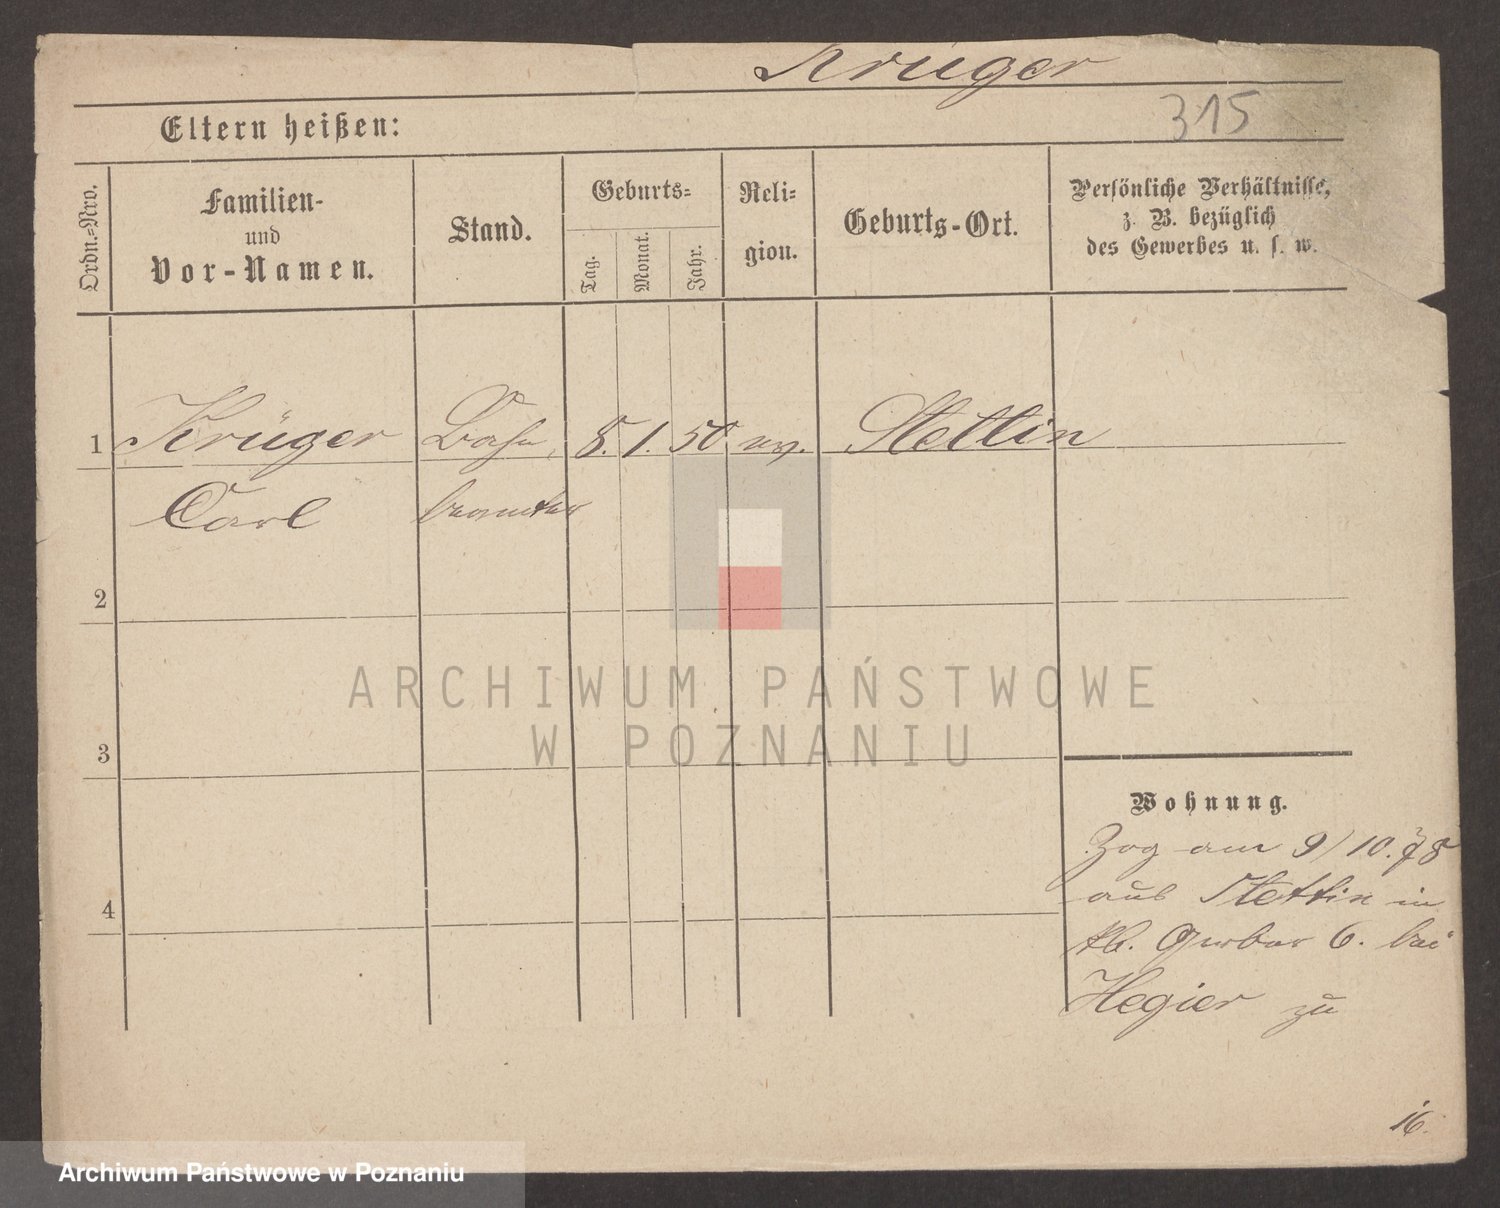 Krüger
315
Eltern heißen:
Ordn.-Nro.
Familien-
und
Vor-Namen.
Stand.
Geburts-
Tag.
Monat.
Jahr.
Reli-
gion.
Geburts-Ort.
Persönliche Verhältnisse,
z. B. bezüglich
des Gewerbes u. s. w.
1 Krüger Bahn 8. 1. 50 ev. Stettin
Carl beamter
2
3
4
Wohnung.
Zog am 9/10. 78
aus Stettin in
kl. Gerber 6. bei
Hegier zu
16.
ARCHIWUM PAŃSTWOWE
W POZNANIU
Archiwum Państwowe w Poznaniu